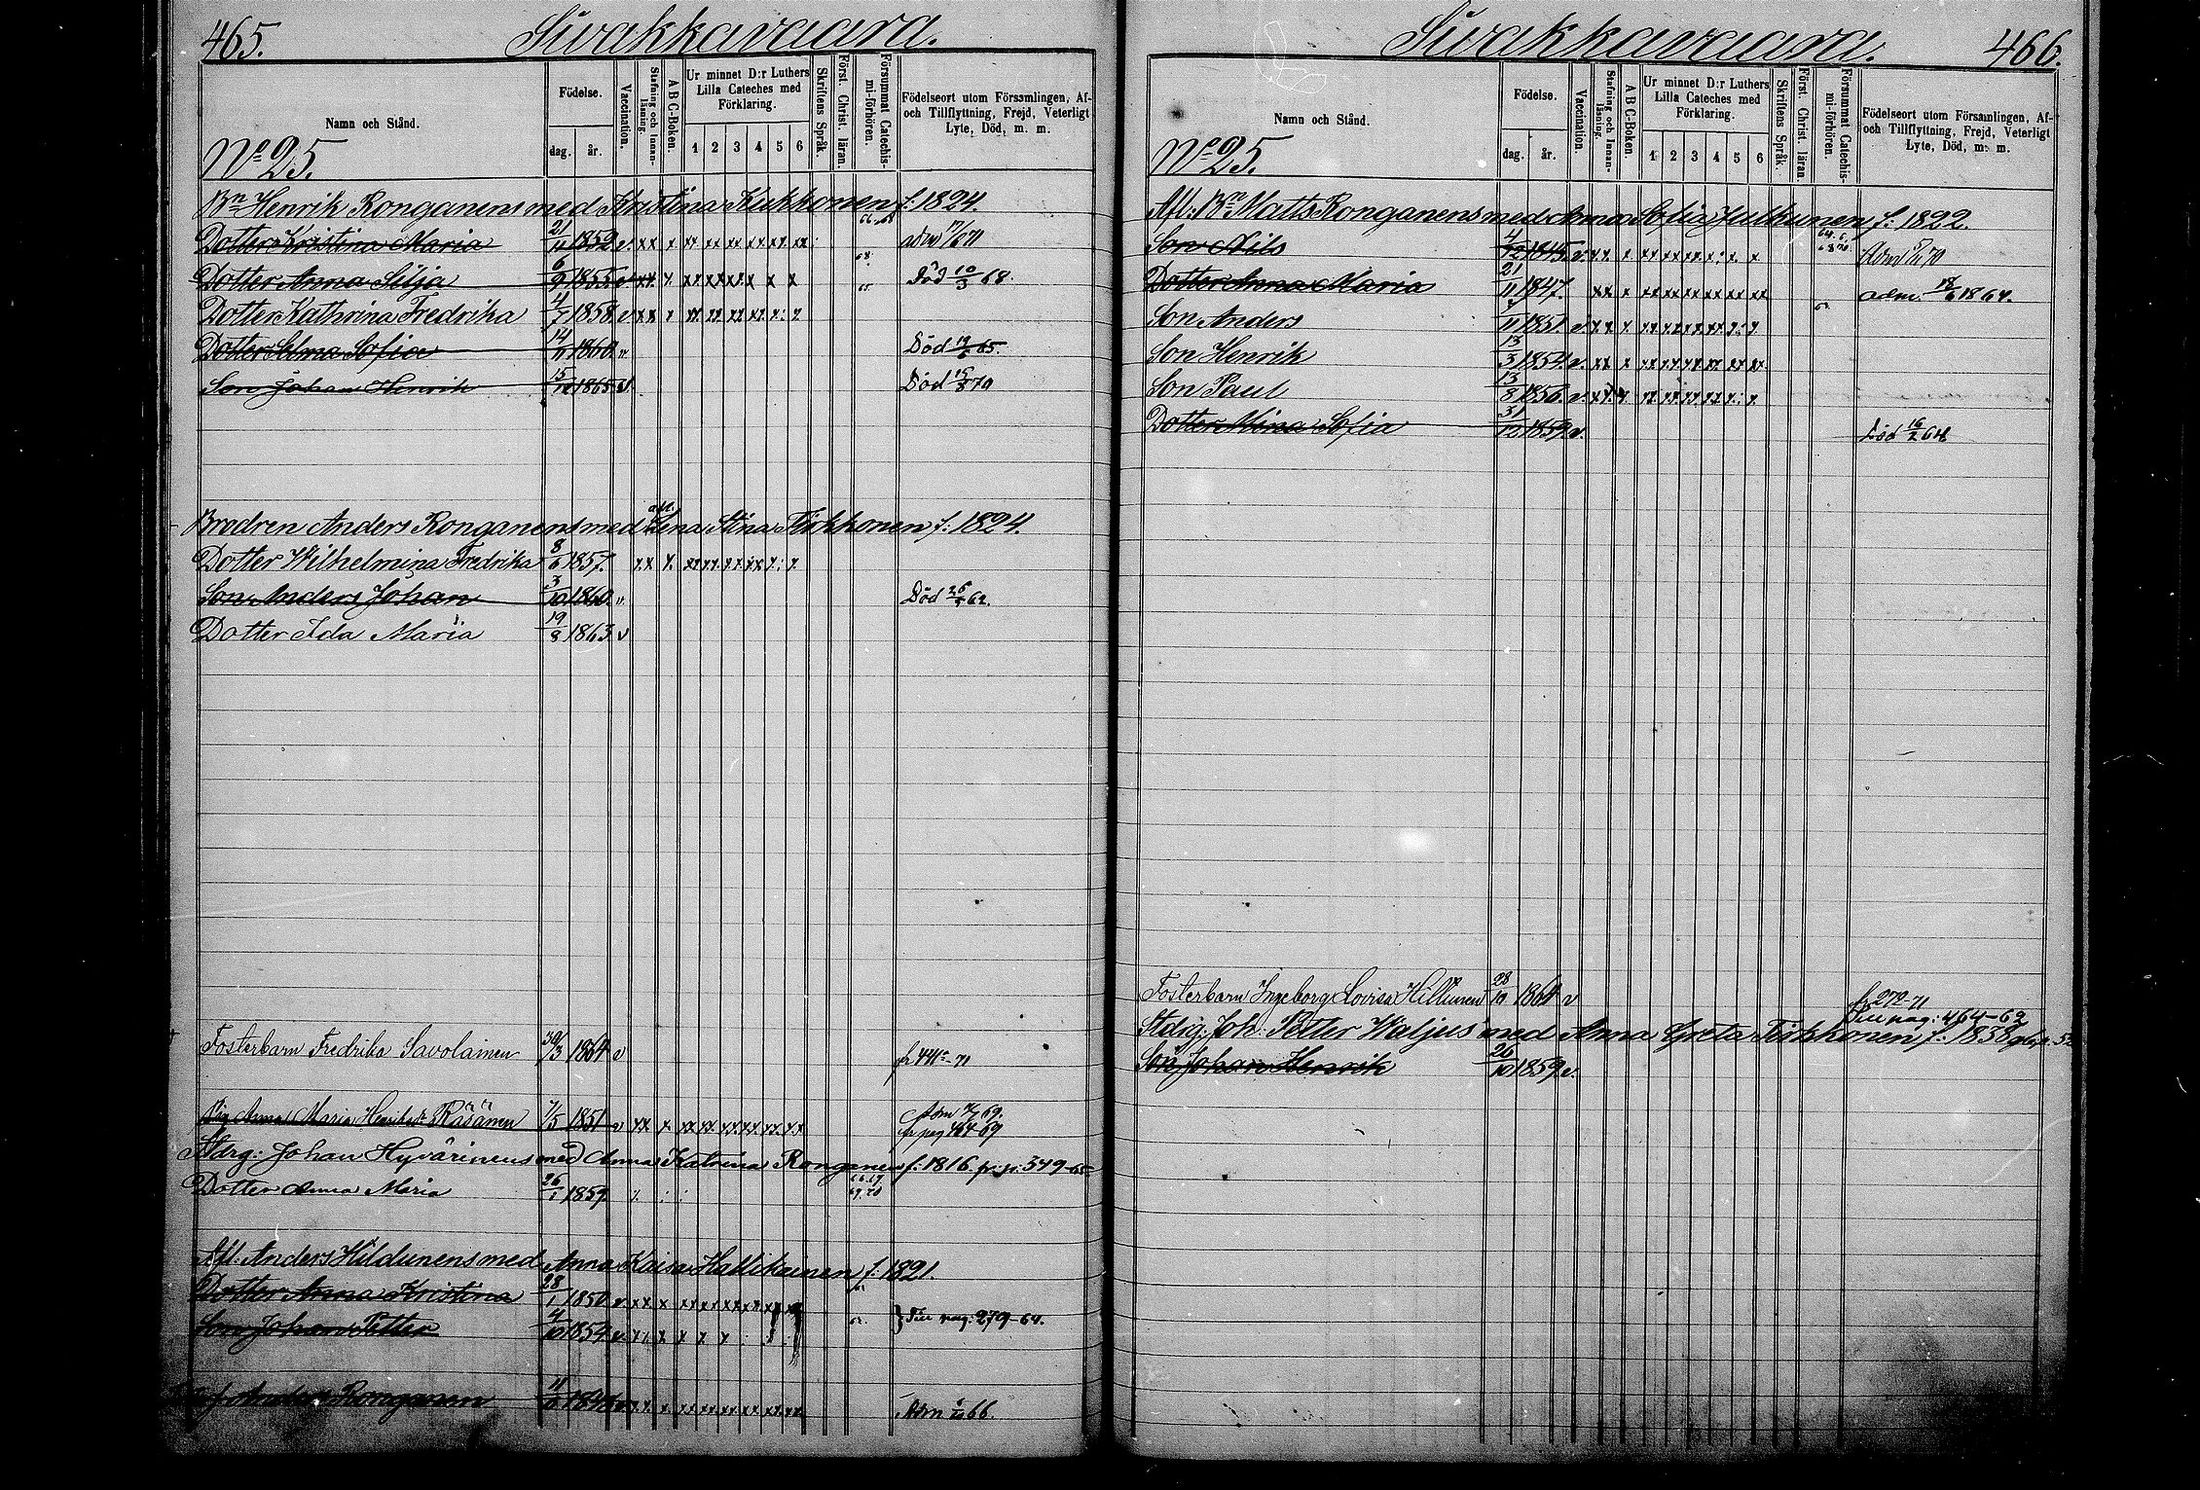 465.
Sivakkavaara.
Namn och Stånd.
Födelse.
dag.
år.
Vaccination.
Stafning och Innanläsning.
A B C-Boken.
Ur minnet D:r Luthers
Lilla Cateches med
Förklaring.
1 2 3 4 5 6
Skriftens Språk.
Först. Christ. läran.
Försummat Catechismi-förhören.
Födelseort utom Församlingen, Af-
och Tillflyttning, Frejd, Veterligt
Lyte, Död, m. m.
No 25.
Bn Henrik Ronganens med Kristina Kukkonen f. 1824.
Dotter Kristina Maria 21/11 1852 v. adm 71
Dotter Anna Silja 6/9 1855 v 68. Död 10/3 68.
Dotter Kathrina Fredrika 4/7 1858 v
Dotter Selma Sofia 14/11 1860 v. Död 65.
Son Johan Henrik 15/12 1865 v. Död 15/8 70
Brodren Anders Ronganens med Lena Stina Tirkkonen f. 1824.
Dotter Wilhelmina Fredrika 8/6 1857.
Son Anders Johan 3/10 1860. v. Död 62.
Dotter Ida Maria 19/8 1863 v
Fosterbarn Fredrika Savolainen 30/3 1864 v fr 441-71
Pig. Anna Maria Räsänen 7/5 1851 v Adm 69.
fr pag 464-69
Stdrg: Johan Hyvärinens med Anna Katrina Ronganen f. 1816. fr. p. 349-65
Dotter Anna Maria 26/1 1859. 66.67. 69.70
Afl. Anders Hildunens med Anna Kaisa Hallikainen f. 1821.
Dotter Anna Kristina 28/1 1850 v
Son Johan Petter 4/10 1854 v. } Till pag: 279-64.
Anders Ronganen Adm 66.
Sivakkavaara.
466.
Namn och Stånd.
Födelse.
dag.
år.
Vaccination.
Stafning och Innanläsning.
A B C-Boken.
Ur minnet D:r Luthers
Lilla Cateches med
Förklaring.
1 2 3 4 5 6
Skriftens Språk.
Först. Christ. läran.
Försummat Catechismi-förhören.
Födelseort utom Församlingen, Af-
och Tillflyttning, Frejd, Veterligt
Lyte, Död, m. m.
No 25.
Afl: Bn Matts Ronganens med Anna Sofia Julkunen f. 1822.
Son Nils 4/12 1845. v. Adm 70
Dotter Anna Maria 21/11 1847. adm. 18/6 1864.
Son Anders 1851. v.
Son Henrik 13/3 1854. v.
Son Paul 13/8 1856. v.
Dotter Mina Sofia 31/10 1859. v. Död 16/2 68
Fosterbarn Ingeborg Lovisa Hiltunen 28/10 1864 v fr 272-71
Till pag: 464-62
Stdig: Joh: Petter Waljus med Anna Greta Tirkkonen f. 1838
Son Johan Henrik 26/10 1859. v.